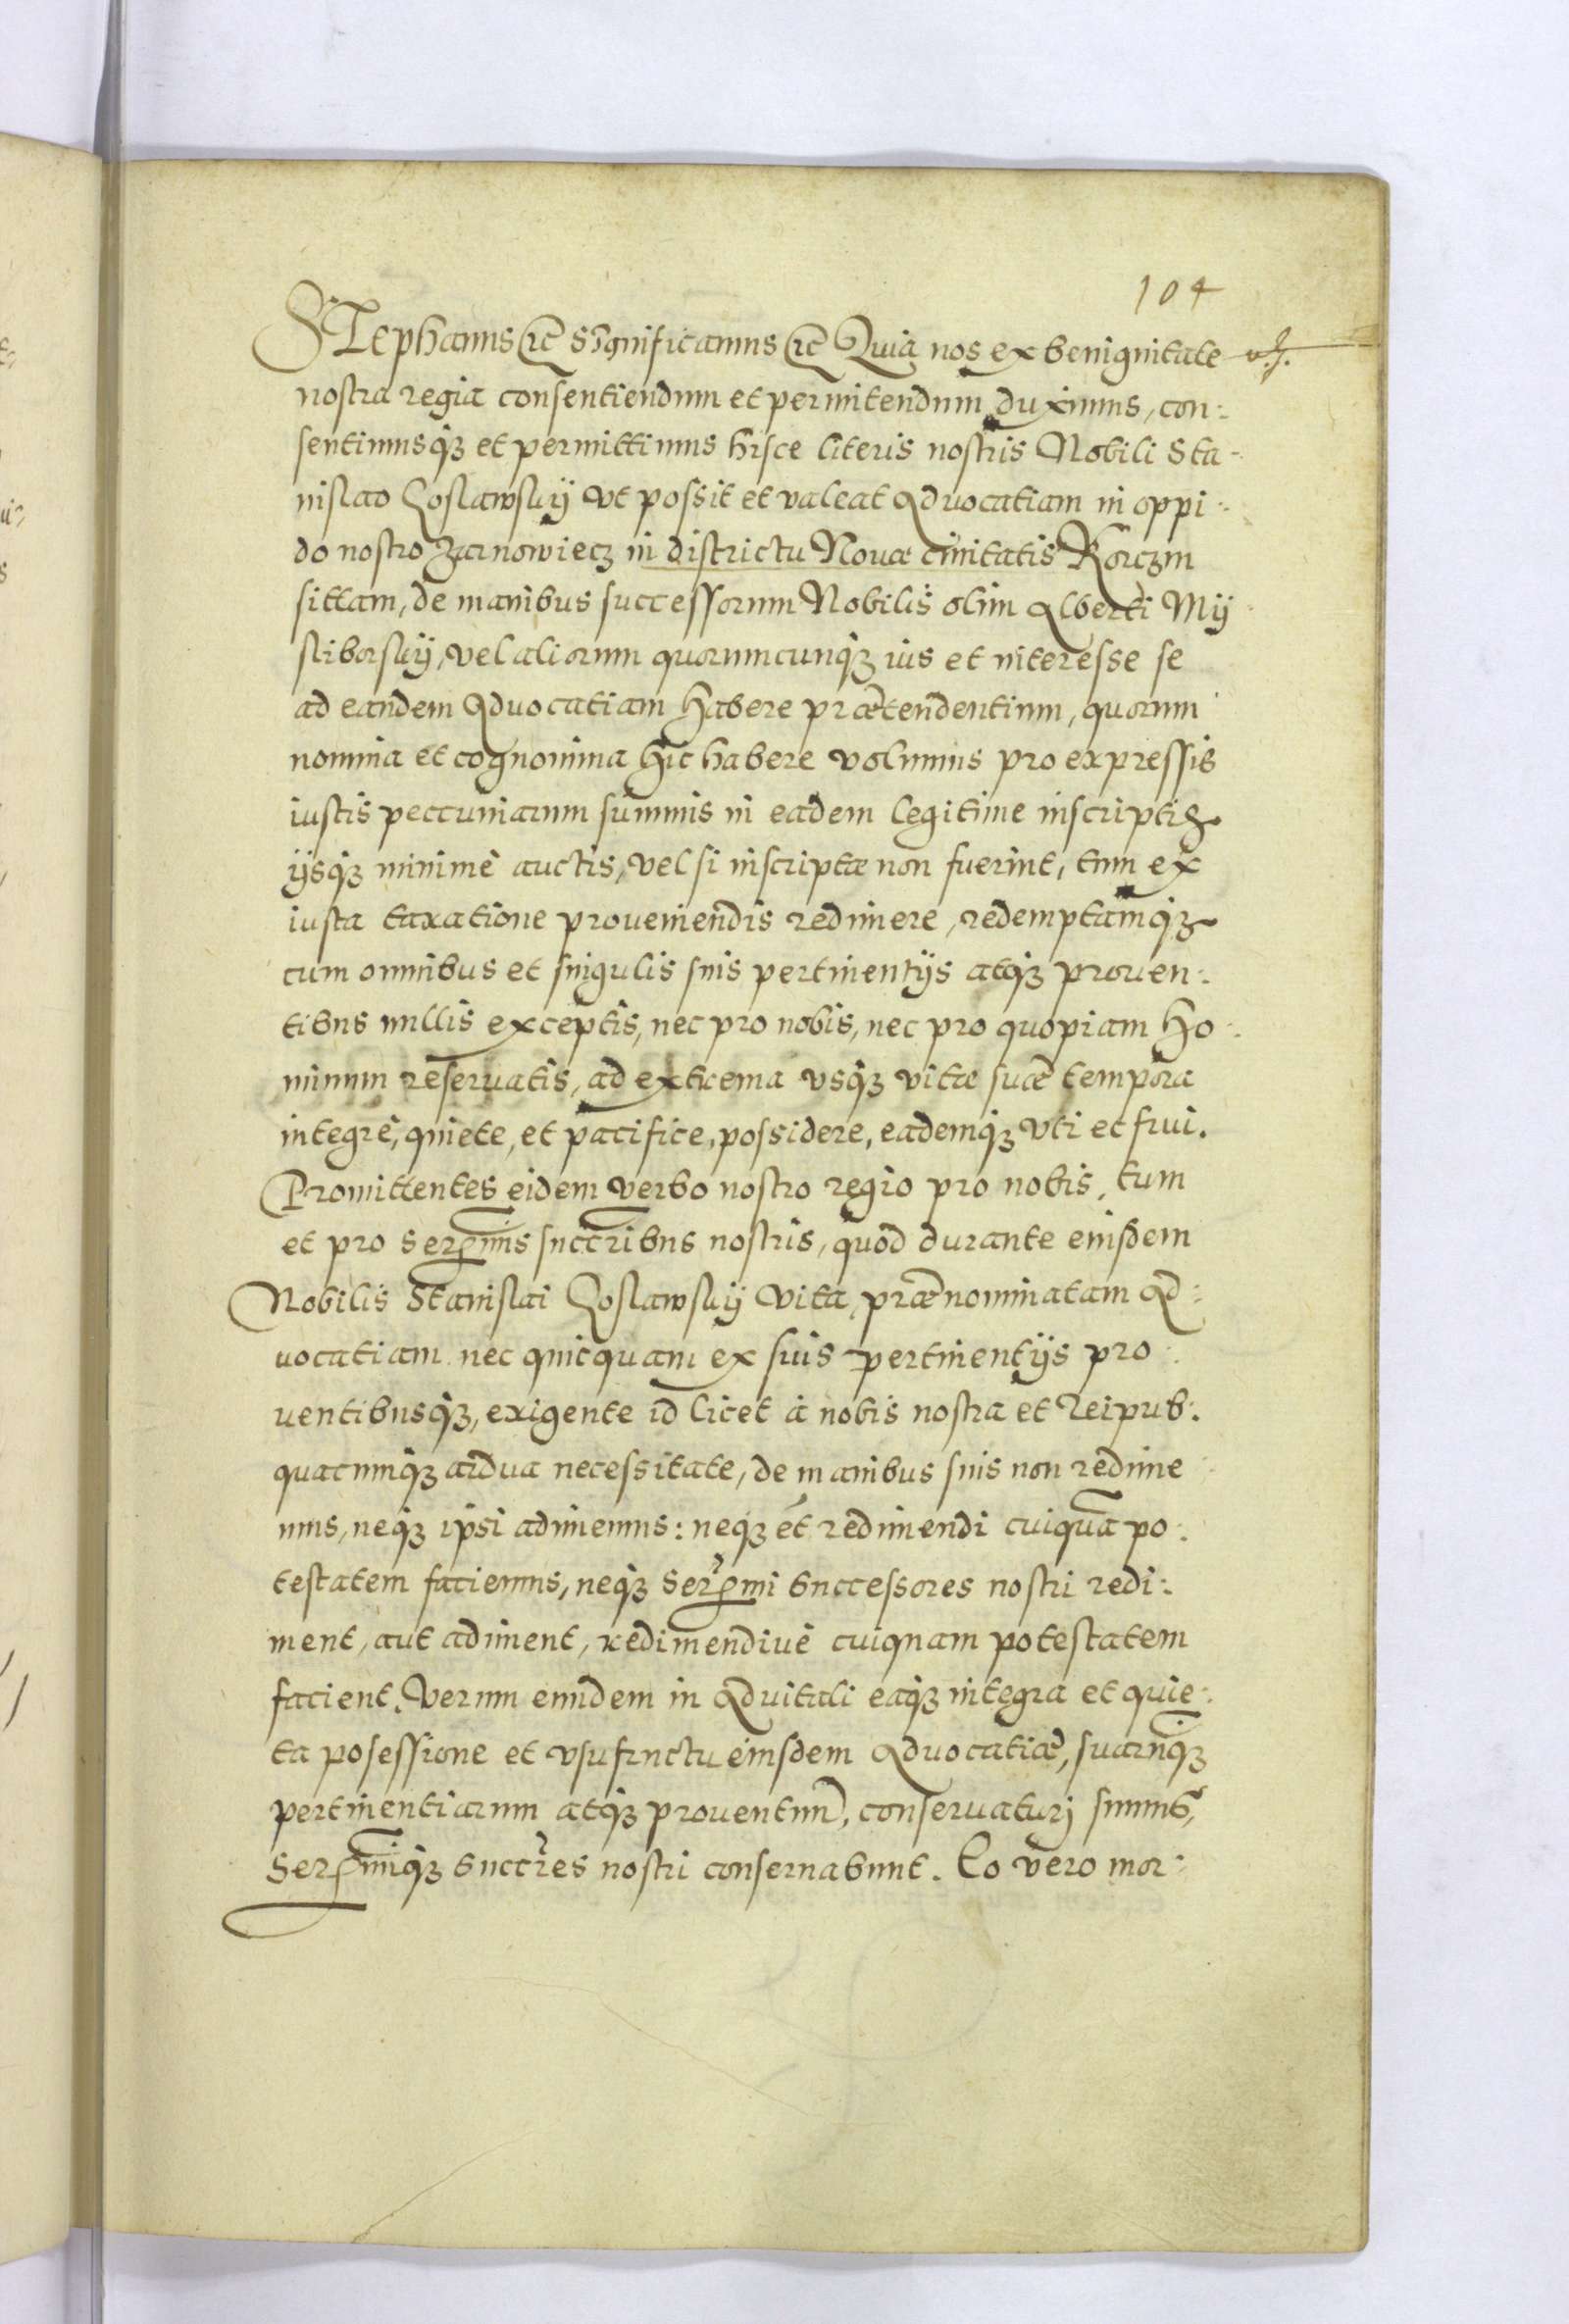 104
STephanus etc Significamus etc Quia nos ex benignitate
nostra regia consentiendum et permitendum duximus, con-
sentimusq3 et permittimus hisce literis nostris Nobili Sta-
nislao Coslawskij vt possit et valeat Aduocatiam in oppi-
do nostro Zarnowiecz in districtu Nouae ciuitatis Korczin
sittam, de manibus successorum Nobilis olim Alberti Mij
sliborskij, vel aliorum quorumcunq3 ius et interesse se
ad eandem Aduocatiam habere praetendentium, quorum
nomina et cognomina hic habere volumus pro expressis
iustis peccuniarum summis in eadem legitime inscriptis
ijsq3 minimè auctis, vel si inscriptae non fuerint, tum ex
iusta taxatione proueniendis redimere, redemptamq3
cum omnibus et singulis suis pertinentijs atq3 prouen-
tibus nullis exceptis, nec pro nobis, nec pro quopiam ho-
minum reseruatis, ad extrema vsq3 vitae suae tempora
integrè, quiete, et pacifice, possidere, eademq3 vti et frui.
Promittentes eidem verbo nostro regio pro nobis, tum
et pro Serenmis succribus nostris, quod durante eiusdem
Nobilis Stanislai Coslawskij vita, praenominatam Ad-
uocatiam nec quicquam ex suis pertinentijs pro-
uentibusq3, exigente id licet à nobis nostra et Reipub.
quacunq3 ardua necessitate, de manibus suis non redime-
mus, neq3 ipsi adimemus: neq3 et redimendi cuiquam po-
testatem faciemus, neq3 Serenmi Successores nostri redi-
ment, aut adiment, redimendiuè cuiquam potestatem
facient. Verum eundem in Aduitali eaq3 integra et quie-
ta posessione et vsufructu eiusdem Aduocatiae, suarumq3
pertinentiarum atq3 prouentuum, conseruaturj sumus,
Serenmiq3 Succres nostri conseruabunt. Eo vero mor-